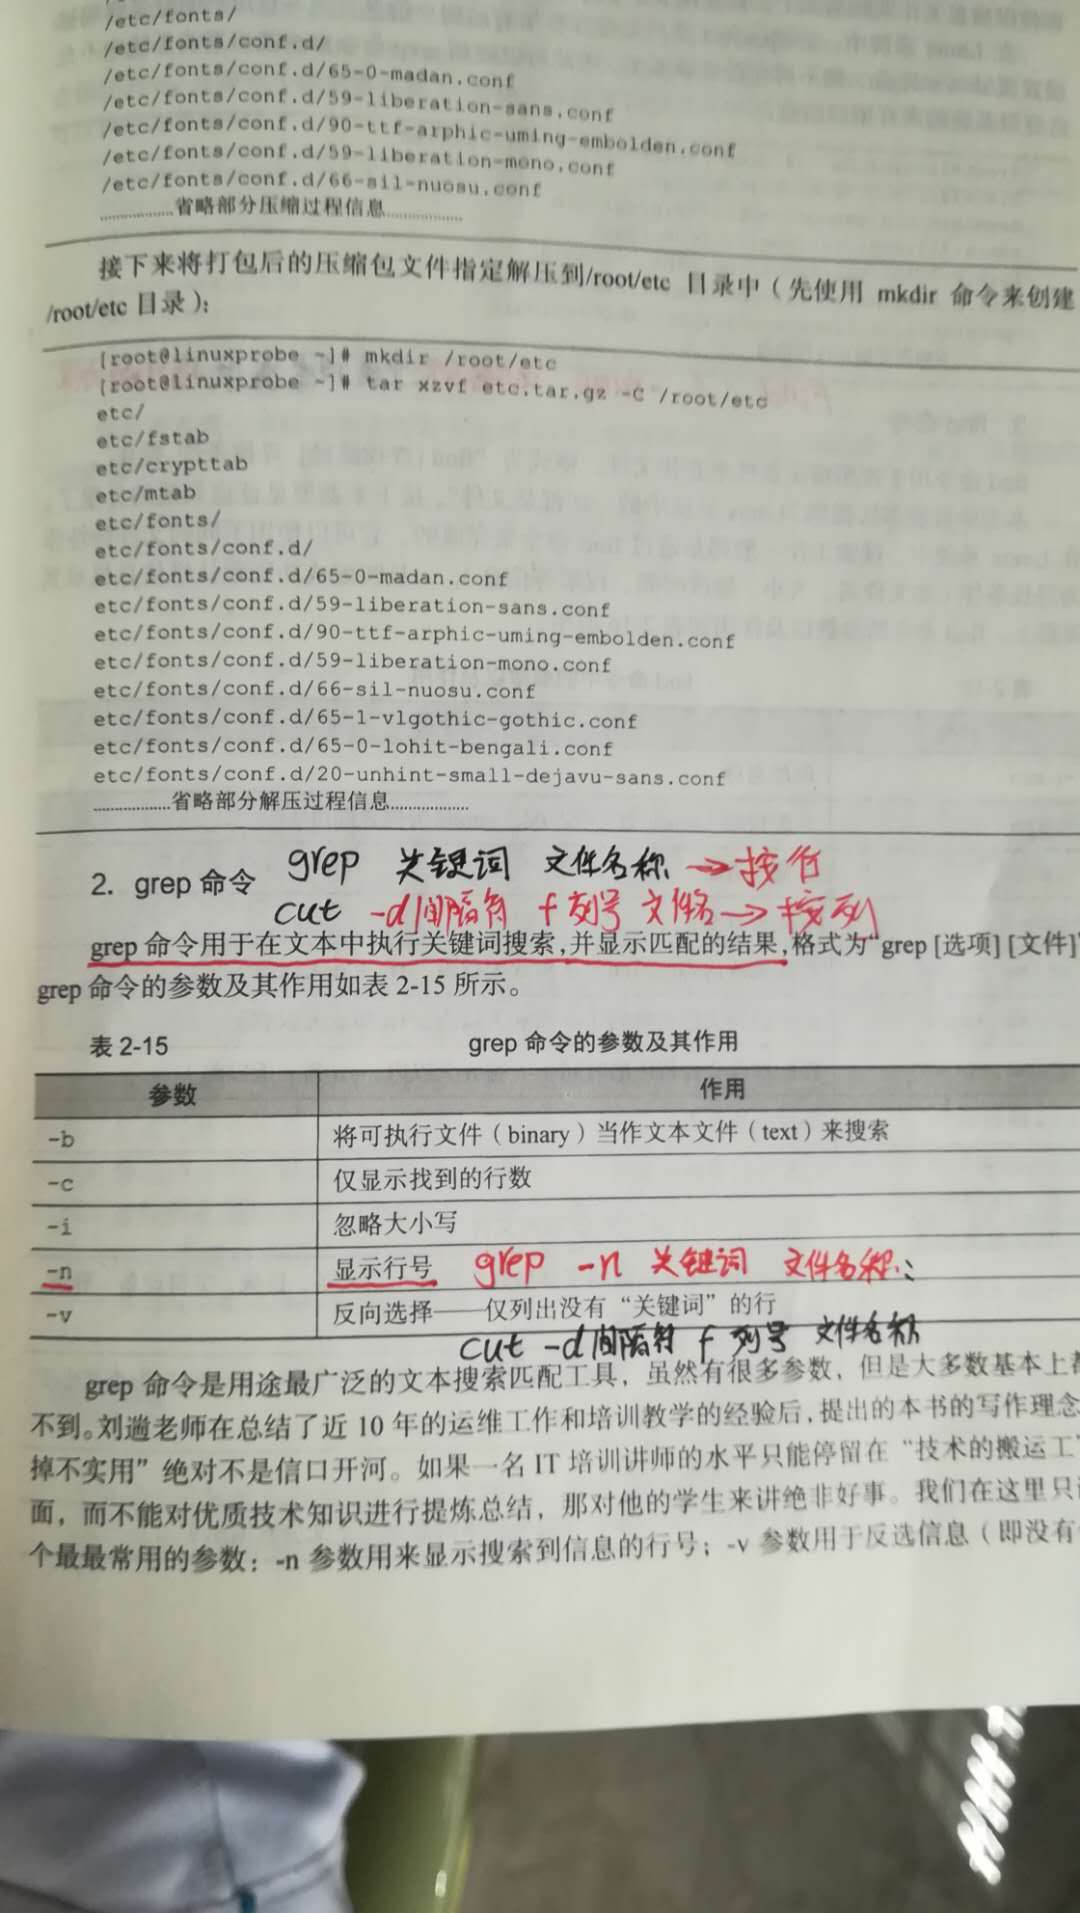 /etc/fonts/
/etc/fonts/conf.d/
/etc/fonts/conf.d/65-0-madan.conf
/etc/fonts/conf.d/59-liberation-sans.conf
/etc/fonts/conf.d/90-ttf-arphic-uming-embolden.conf
/etc/fonts/conf.d/59-liberation-mono.conf
/etc/fonts/conf.d/66-sil-nuosu.conf
………………省略部分压缩过程信息………………
接下来将打包后的压缩包文件指定解压到/root/etc 目录中（先使用 mkdir 命令来创建
/root/etc 目录）：
[root@linuxprobe ~]# mkdir /root/etc
[root@linuxprobe ~]# tar xzvf etc.tar.gz -C /root/etc
etc/
etc/fstab
etc/crypttab
etc/mtab
etc/fonts/
etc/fonts/conf.d/
etc/fonts/conf.d/65-0-madan.conf
etc/fonts/conf.d/59-liberation-sans.conf
etc/fonts/conf.d/90-ttf-arphic-uming-embolden.conf
etc/fonts/conf.d/59-liberation-mono.conf
etc/fonts/conf.d/66-sil-nuosu.conf
etc/fonts/conf.d/65-1-vlgothic-gothic.conf
etc/fonts/conf.d/65-0-lohit-bengali.conf
etc/fonts/conf.d/20-unhint-small-dejavu-sans.conf
………………省略部分解压过程信息………………
2. grep 命令 grep 关键词 文件名称 → 按行
cut -d间隔符 f 列号 文件名 → 按列
grep 命令用于在文本中执行关键词搜索,并显示匹配的结果,格式为“grep [选项] [文件]”
grep 命令的参数及其作用如表 2-15 所示。
表 2-15 grep 命令的参数及其作用
参数 作用
-b 将可执行文件（binary）当作文本文件（text）来搜索
-c 仅显示找到的行数
-i 忽略大小写
-n 显示行号 grep -n 关键词 文件名称;
-v 反向选择——仅列出没有“关键词”的行
cut -d间隔符 f 列号 文件名称
grep 命令是用途最广泛的文本搜索匹配工具，虽然有很多参数，但是大多数基本上都
不到。刘遄老师在总结了近 10 年的运维工作和培训教学的经验后,提出的本书的写作理念
掉不实用”绝对不是信口开河。如果一名 IT 培训讲师的水平只能停留在“技术的搬运工”
面，而不能对优质技术知识进行提炼总结，那对他的学生来讲绝非好事。我们在这里只
个最最常用的参数：-n 参数用来显示搜索到信息的行号；-v 参数用于反选信息（即没有